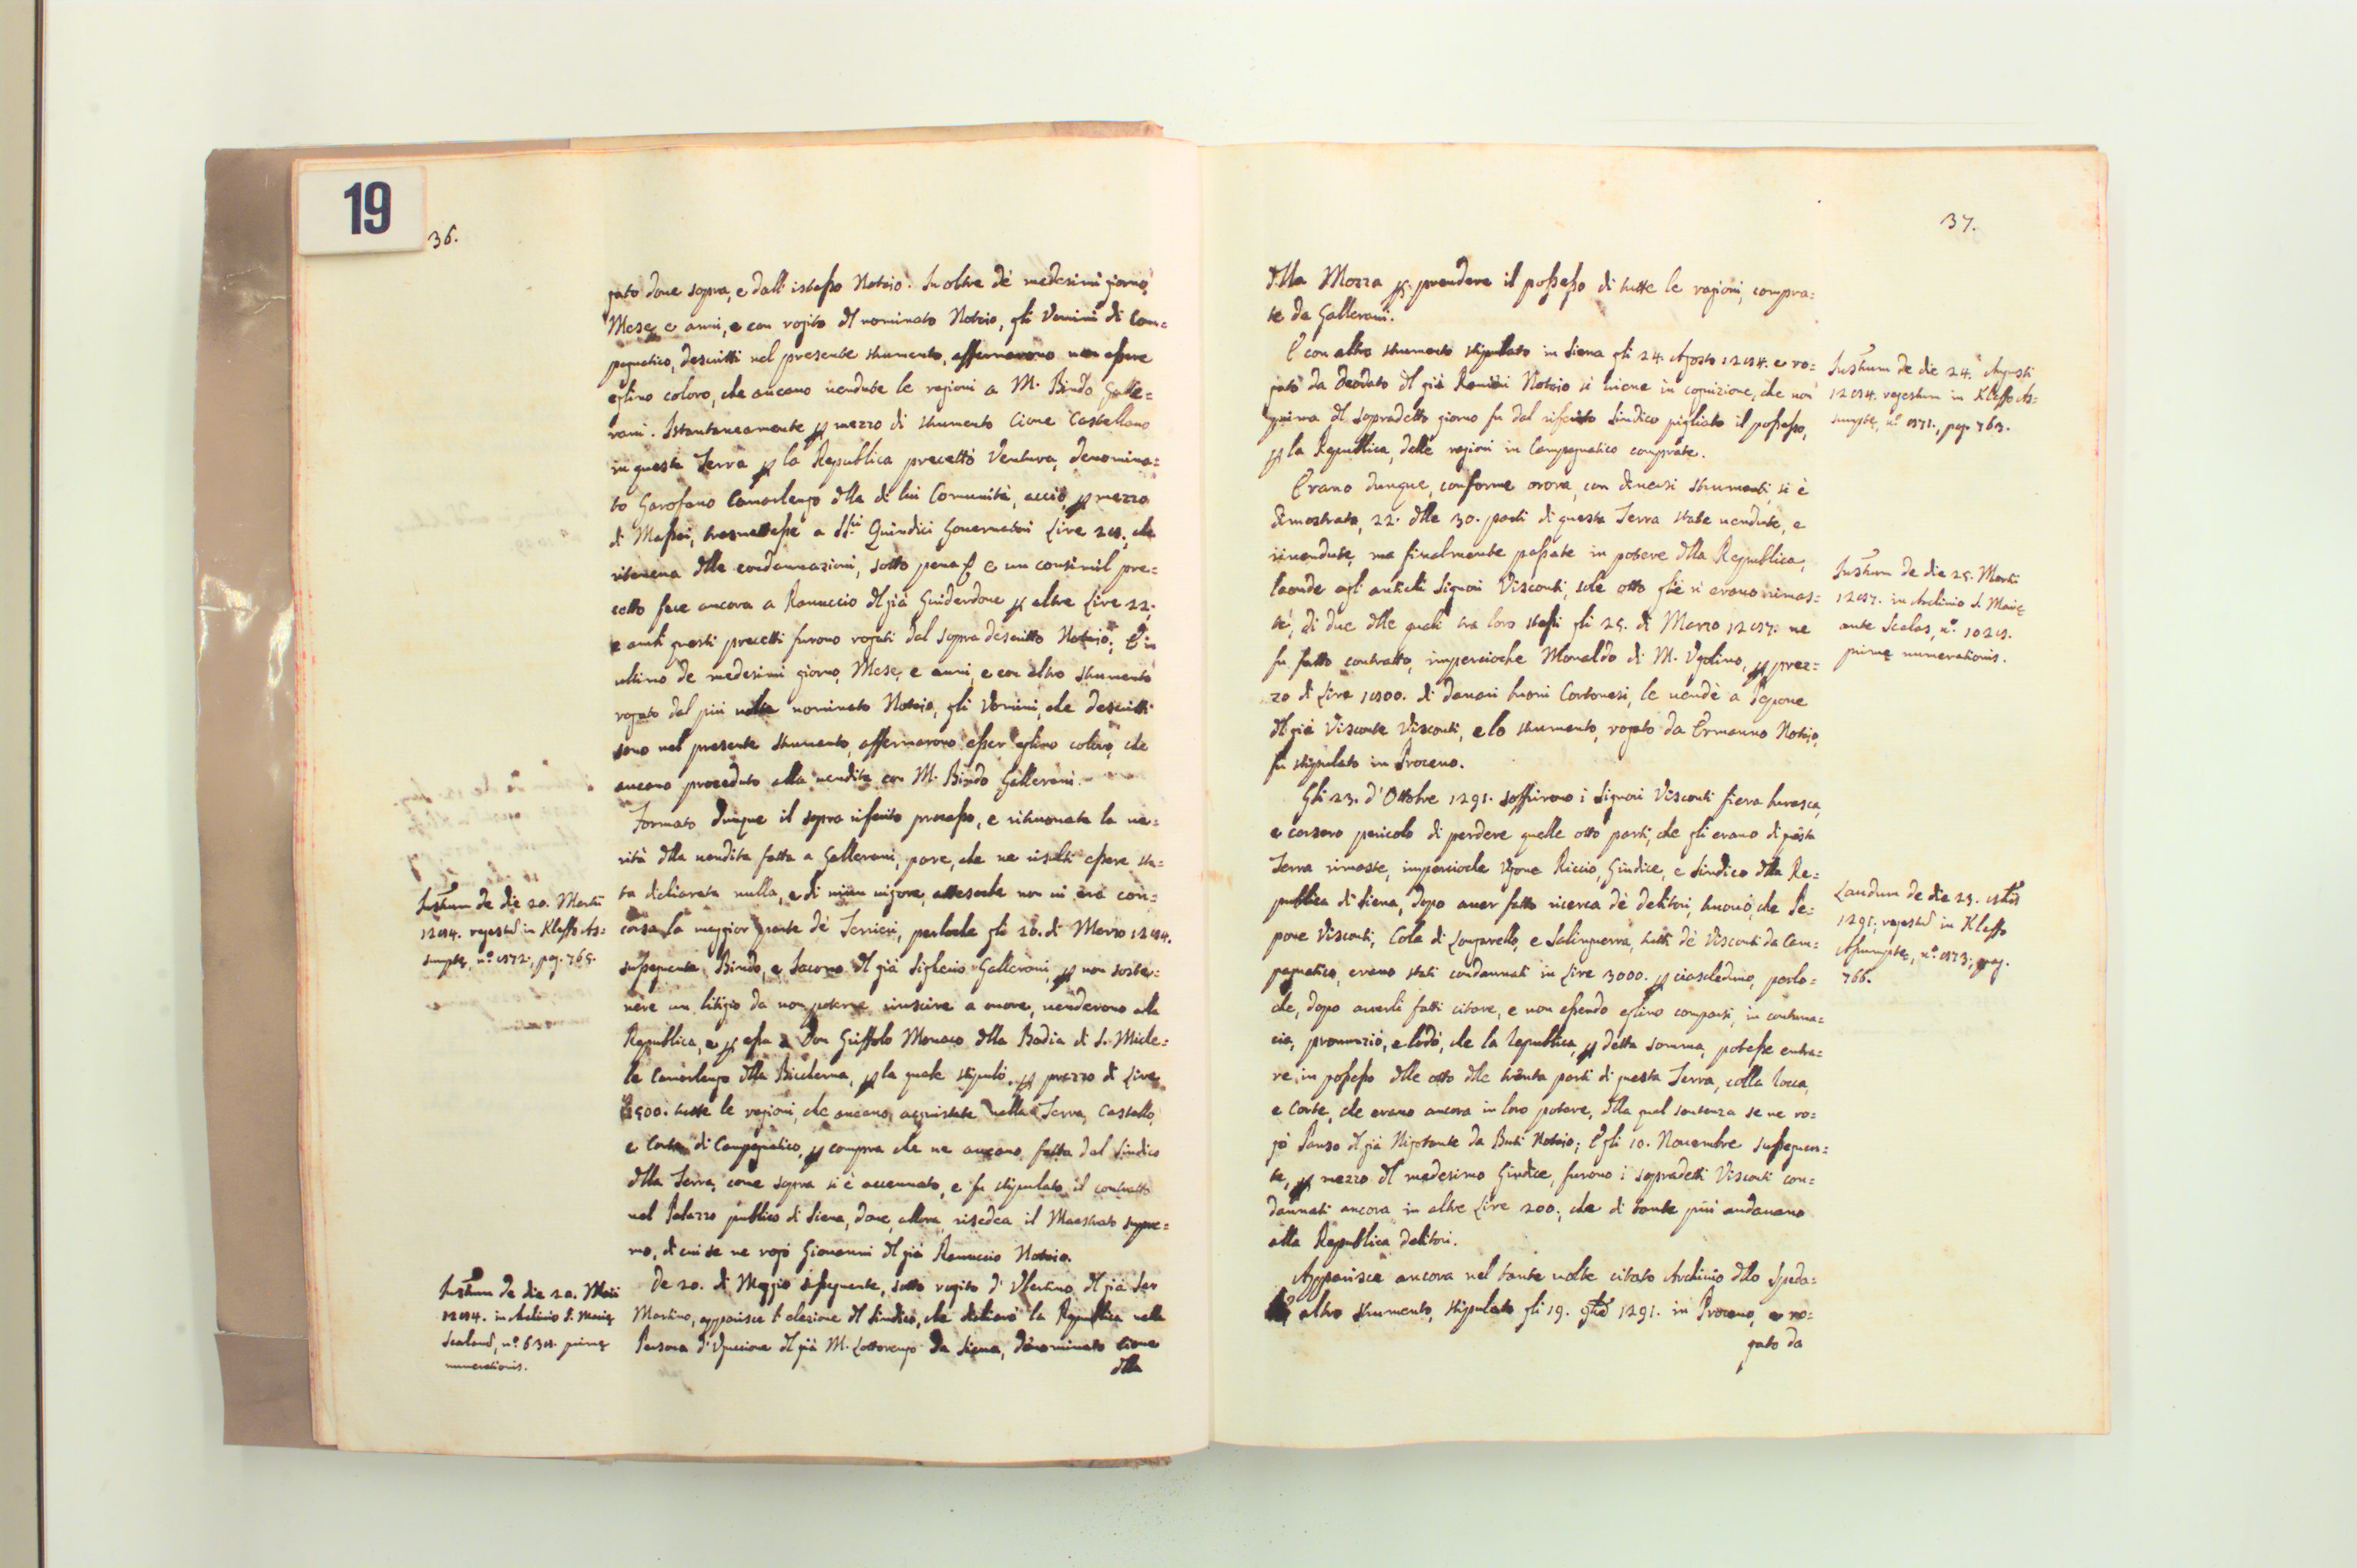 19
36.
gato doue sopra, e dall' istesso Notaio. In oltre de' medesimi giorno,
Mese, e anni, e con rogito dl nominato Notaio, gli Vomini di Cam=
pagnatico, descritti nel presente strumento, affermarono non essere
eglino coloro, che aueano uendute le ragioni a M. Bindo Galle=
rani. Istantaneamente p mezzo di strumento Cione Castellano
in questa Terra p la Republica precettò Ventura, denomina=
to Garofano Camarlengo dlla di lui Comunità, acciò, p mezzo
di Massei, trasmettesse a Sri Quindici Gouernatori Lire 28., che
riteneua dlle condannazioni, sotto pena e un consimil pre=
cetto fece ancora a Ranuccio dl già Guiderdone p altre Lire 22.,
e amb questi precetti furono rogati dal sopra descritto Notaio; E in
ultimo de medesimi giorno, Mese, e anni, e con altro strumento
rogato dal più uolte nominato Notaio, gli Vomini, che descritti
sono nel presente strumento, affermarono esser eglino coloro, che
aueano proceduto alla uendita con M. Bindo Gallerani.
Formato dunque il sopra riferito processo, e ritrouata la ue=
rità dlla uendita fatta a Gallerani, pare, che ne risulti essere sta=
ta dichiarata nulla, e di niun uigore, attesoche non ui era con=
corsa la maggior parte de' Terrieri, perloche gli 20. di Marzo 1284.
Instrum de die 20. Martii
1284. regestu in Kleffo As=
sumptę, n.º 872., pag. 765.
susseguente, Bindo, e Iacomo dl già Sighieri Gallerani, p non soste=
nere un litigio da non poterne riuscire a onore, uenderono alla
Republica, e p essa a Don Griffolo Monaco dlla Badia di S. Miche=
le Camarlengo dlla Biccherna, p la quale stipulò, p prezzo di Lire
8500. tutte le ragioni, che aueano acquistate nella Terra, Castello,
e Corte di Campagnatico, p compra che ne aueano fatta dal Sindico
dlla Terra, come sopra si è accennato, e fu stipulato il contratto
nel Palazzo publico di Siena, doue, allora, risedea il Maestrato supre=
mo, di cui se ne rogò Giouanni dl già Ranuccio Notaio.
De 20. di Maggio susseguente, sotto rogito d' Vbertino dl già Ser
Martino, apparisce l' elezione dl Sindico, che dichiarò la Republica nella
Persona d' Vguccione dl già M. Lottorengo da Siena, denominato Cione
dlla
Instrum de die 20. Maii
1284. in Archiuio S. Marię
Scalaru, n.º 638. primę
numerationis.
37.
dlla Mozza p prendere il possesso di tutte le ragioni, compra=
te da Gallerani.
E con altro strumento stipulato in Siena gli 24. Agosto 1284. e ro=
gato da Deodato dl già Ranieri Notaio si uiene in cognizione, che non
prima dl sopradetto giorno fu dal riferito Sindico pigliato il possesso,
p la Republica, delle ragioni in Campagnatico comprate.
Instrum de die 24. Augusti
1284. regestum in Kleffo As=
sumptę, n.º 871., pag. 763.
Erano dunque, conforme orora, con diuersi strumenti, si è
dimostrato, 22. dlle 30. parti di questa Terra state uendute, e
riuendute, ma finalmente passate in potere dlla Republica,
laonde agl' antichi Signori Visconti, sole otto glie n' erano rimas=
te, di due dlle quali tra loro stessi gli 25. di Marzo 1287. ne
fu fatto contratto, impercioche Monaldo di M. Vgolino, p prez=
zo di Lire 1800. di denari buoni Cortonesi, le uendè a Pepone
dl già Visconte Visconti, e lo strumento, rogato da Ermanno Notaio,
fu stipulato in Proceno.
Instrum de die 25. Martii
1287. in Archiuio S. Marię
ante Scalas, n.º 1028.
primę numerationis.
Gli 23. d' Ottobre 1291. soffrirono i Signori Visconti fiera burasca,
e corsero pericolo di perdere quelle otto parti, che gli erano di questa
Terra rimaste, impercioche Vgone Riccio, Giudice, e Sindico dlla Re=
publica di Siena, dopo auer fatto ricerca de' debitori, truouò, che Pe=
pone Visconti, Cola di Longarello, e Salinguerra, tutti de' Visconti da Cam=
pagnatico, erano stati condannati in Lire 3000. p ciascheduno, perlo=
che, dopo auerli fatti citare, e non essendo eglino comparsi, in contuma=
cia, pronunziò, e lodò, che la Republica, p detta somma, potesse entra=
re in possesso dlle otto dlle trenta parti di questa Terra, colla Rocca,
e Corte, che erano ancora in loro potere, dlla qual sentenza se ne ro=
gò Panzo dl già Nigotante da Buti Notaio; E gli 10. Nouembre susseguen=
te, p mezzo dl medesimo Giudice, furono i sopradetti Visconti con=
dannati ancora in altre Lire 200., che di tante più andauano
alla Republica debitori.
Laudum de die 23. 8bris
1291. regestu in Kleffo
Assumptę, n.º 873., pag.
766.
Apparisce ancora nel tante uolte citato Archiuio dllo Speda=
le altro strumento, stipulato gli 19. 9bre 1291. in Proceno, e ro=
gato da